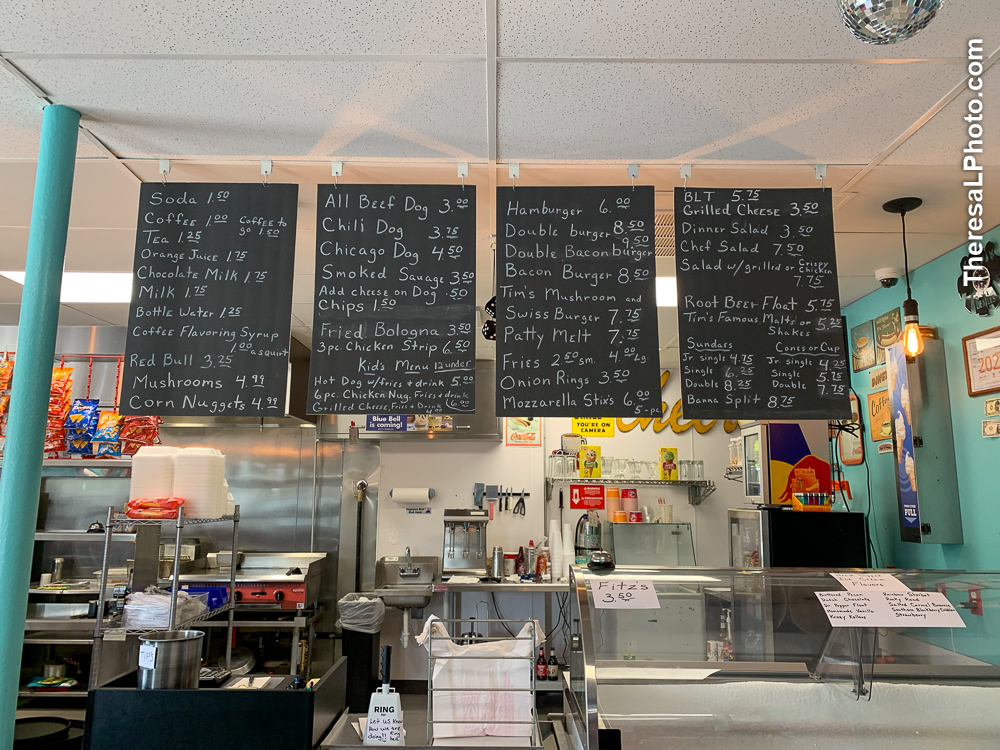 TheresaLPhoto.com
Soda 1.50
Coffee 1.00 Coffee to
go 1.50
Tea 1.25
Orange Juice 1.75
Chocolate Milk 1.75
Milk 1.75
Bottle Water 1.25
Coffee Flavoring Syrup
1.00 a squirt
Red Bull 3.25
Mushrooms 4.99
Corn Nuggets 4.99
All Beef Dog 3.00
Chili Dog 3.75
Chicago Dog 4.50
Smoked Sauage 3.50
Add cheese on Dog .50
Chips 1.50
Fried Bologna 3.50
3pc. Chicken Strip 6.50
Kid's Menu 12 under
Hot Dog w/fries + drink 5.00
6pc. Chicken Nug, Fries + drink 6.00
Grilled Cheese, Fries + Drink
Hamburger 6.00
Double burger 8.50
9.50
Double Bacon burger
Bacon Burger 8.50
Tim's Mushroom and
Swiss Burger 7.75
Patty Melt 7.75
Fries 2.50 sm. 4.00 Lg.
Onion Rings 3.50
Mozzarella Stix's 6.00
5-pc.
BLT 5.75
Grilled Cheese 3.50
Dinner Salad 3.50
Chef Salad 7.50
Salad w/grilled or Crispy
Chicken
7.75
Root Beer Float 5.75
Tim's Famous Malts or
Shakes 5.25
Sundaes Cones or Cup
Jr. single 4.75 Jr. single 4.25
Single 6.25 Single 5.75
Double 8.25 Double 7.75
Banna Split 8.75
Blue Bell
is coming!
Coca-Cola
SMILE
YOU'RE ON
CAMERA
Coffee
FULL
Fitz's
3.50
Ice Cream
Flavors
Buttered Pecan
Dutch Chocolate
Dr Pepper Float
Homemade Vanilla
Krazy Kolors
Rainbow Sherbet
Rocky Road
Salted Caramel Brownie
Southern Blackberry Cobbler
Strawberry
TIPS
RING
Let us know
how we are
doing!! Ring
bell